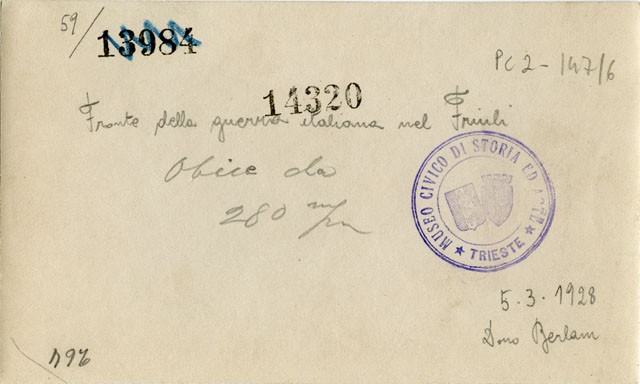 59/
13984
PC 2 - 147/6
14320
Fronte della guerra italiana nel Friuli
Obice da
280 m/m
MUSEO CIVICO DI STORIA ED ARTE
★ TRIESTE ★
5.3.1928
Dono Berlam